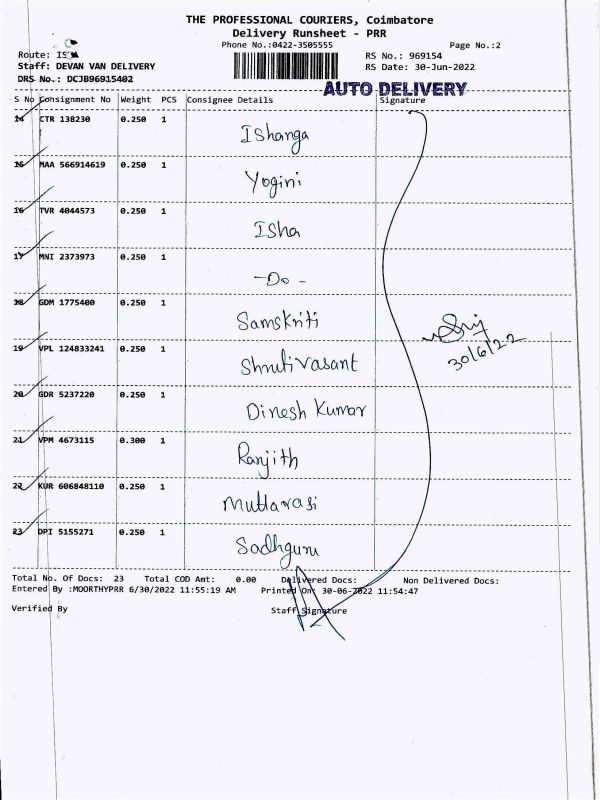 THE PROFESSIONAL COURIERS, Coimbatore
Delivery Runsheet - PRR
Phone No.:0422-3505555 Page No.:2
Route:
Staff: DEVAN VAN DELIVERY
DRS No.: DCJB96915402
RS No.: 969154
RS Date: 30-Jun-2022
AUTO DELIVERY
S No Consignment No Weight PCS Consignee Details Signature
14 CTR 138230 0.250 1 Ishanga
15 MAA 566914619 0.250 1 Yogini
16 TVR 4044573 0.250 1 Isha
17 MNI 2373973 0.250 1 -Do-
18 GDM 1775400 0.250 1 Samskriti
19 VPL 124833241 0.250 1 Shruti Vasant
20 GDR 5237220 0.250 1 Dinesh Kumar
21 VPM 4673115 0.300 1 Ranjith
22 KUR 606848110 0.250 1 Muttarasi
23 DPI 5155271 0.250 1 Sadhguru
30/6/22
Total No. Of Docs: 23 Total COD Amt: 0.00 Delivered Docs: Non Delivered Docs:
Entered By :MOORTHYPRR 6/30/2022 11:55:19 AM Printed On: 30-06-2022 11:54:47
Verified By Staff Signature